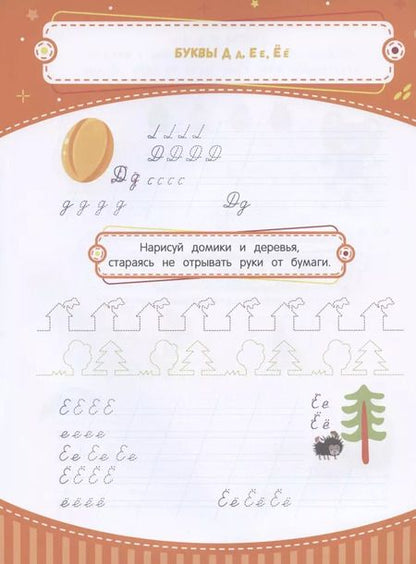 БУКВЫ Д д, Е е, Ё ё
Д Д Д Д
Д д с с с с
д д д д Д д
Нарисуй домики и деревья,
стараясь не отрывать руки от бумаги.
Е Е Е Е Е е
Ё ё
е е е е
Е е Е е Е е
Ё Ё Ё Ё
ё ё ё ё Ё ё Ё ё Ё ё